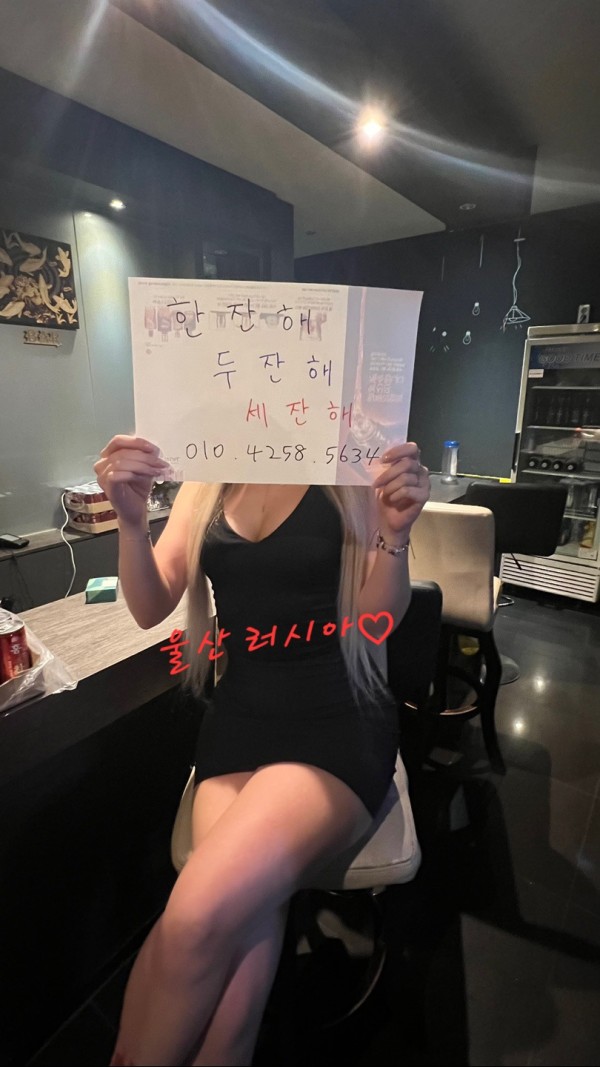 한 잔 해
두 잔 해
세 잔 해
010.4258.5634
울산 러시아♡